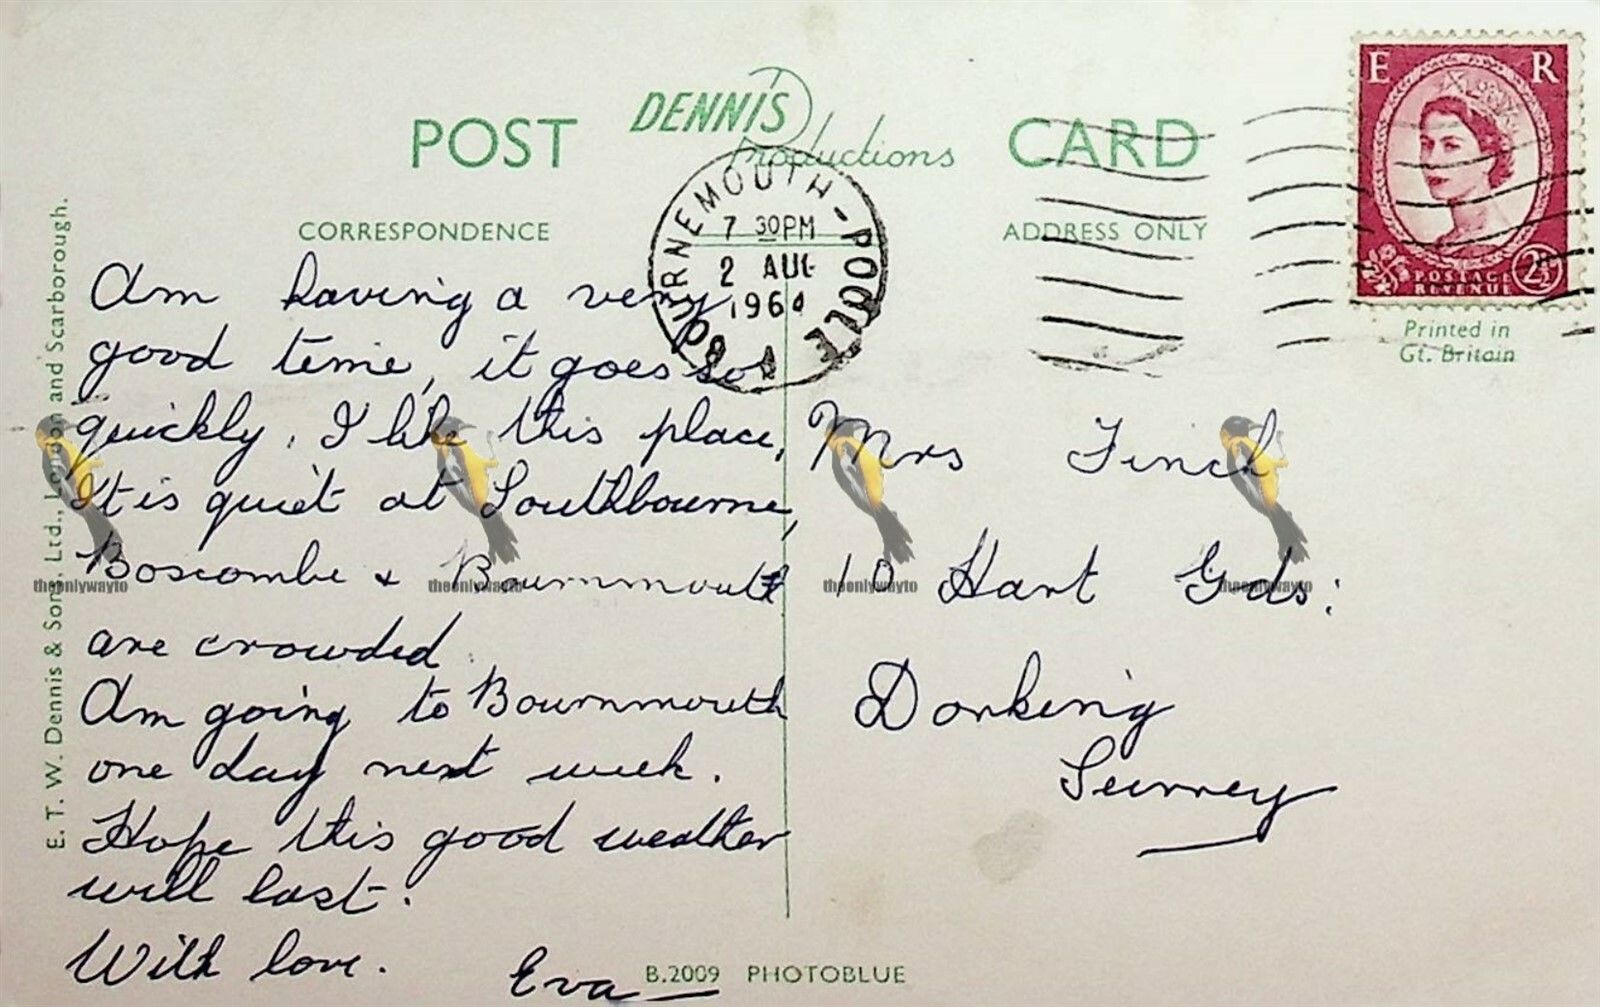 POST
DENNIS
Productions
CARD
CORRESPONDENCE
ADDRESS ONLY
BOURNEMOUTH - POOLE
7 30PM
2 AUG
1964
A
E R
POSTAGE
REVENUE
2½
Printed in
Gt. Britain
E. T. W. Dennis & Sons, Ltd., London and Scarborough.
Am having a very
good time, it goes so
quickly. I like this place,
It is quiet at Southbourne,
Boscombe & Bournmouth
are crowded.
Am going to Bournmouth
one day next week.
Hope this good weather
will last.
With love.
Eva
Mrs Finch
10 Hart Gds:
Dorking
Surrey
B.2009 PHOTOBLUE
theonlywayto theonlywayto theonlywayto theonlywayto